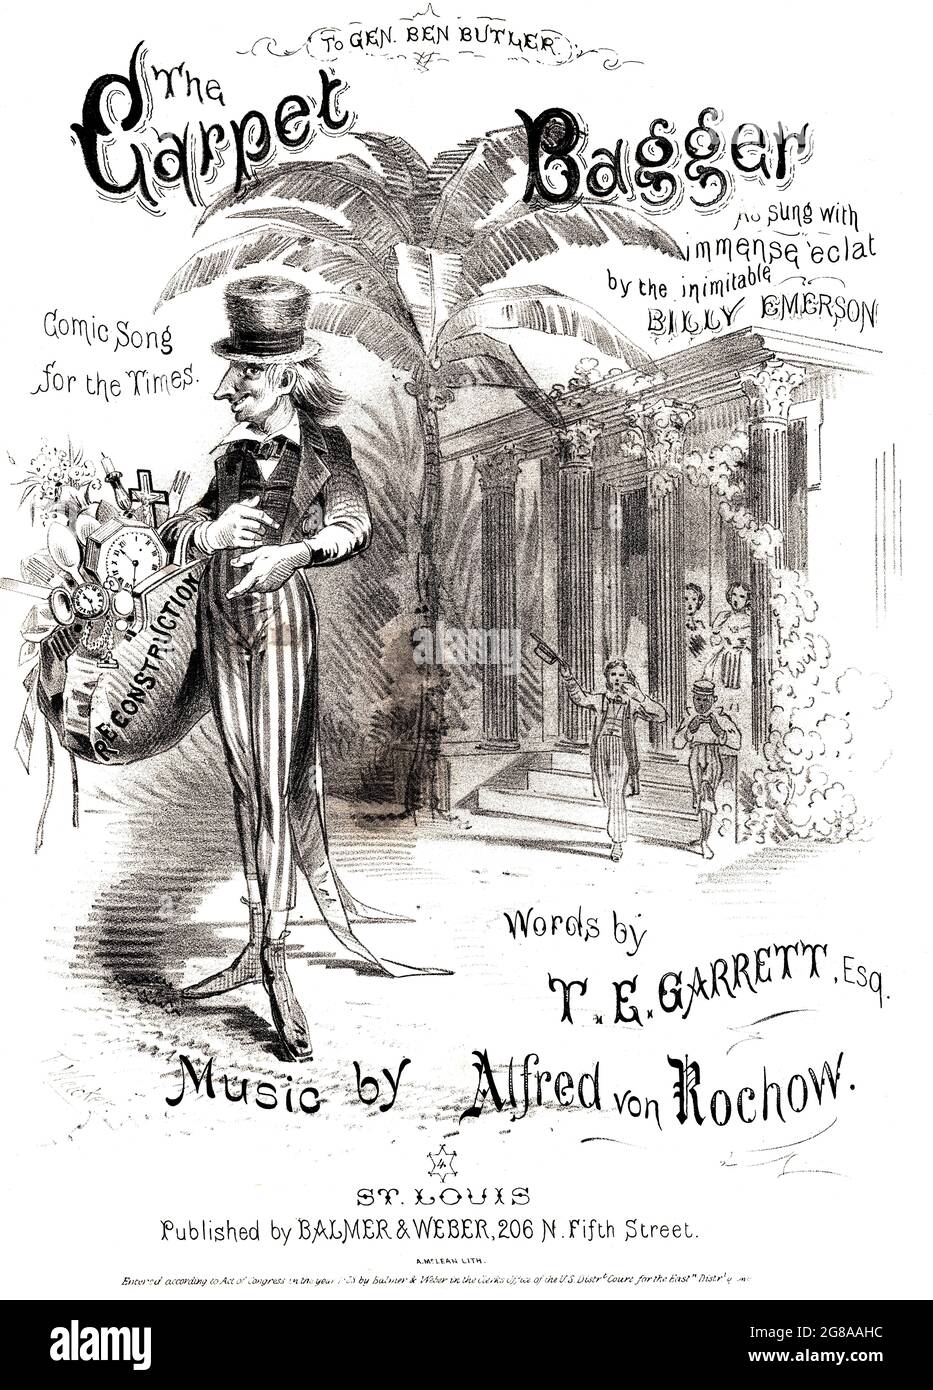 To GEN. BEN BUTLER.
The
Carpet Bagger
As sung with
immense eclat
by the inimitable
BILLY EMERSON
Comic Song
for the Times.
RECONSTRUCTION
alamy
Words by
T. E. GARRETT, Esq.
Music by Alfred von Rochow.
4.
ST. LOUIS
Published by BALMER & WEBER, 206 N. Fifth Street.
A. McLEAN LITH.
Entered according to Act of Congress in the year by Balmer & Weber in the Clerks Office of the U.S. Distr.t Court for the East.n Distr.t
alamy
Image ID: 2G8AAHC
www.alamy.com